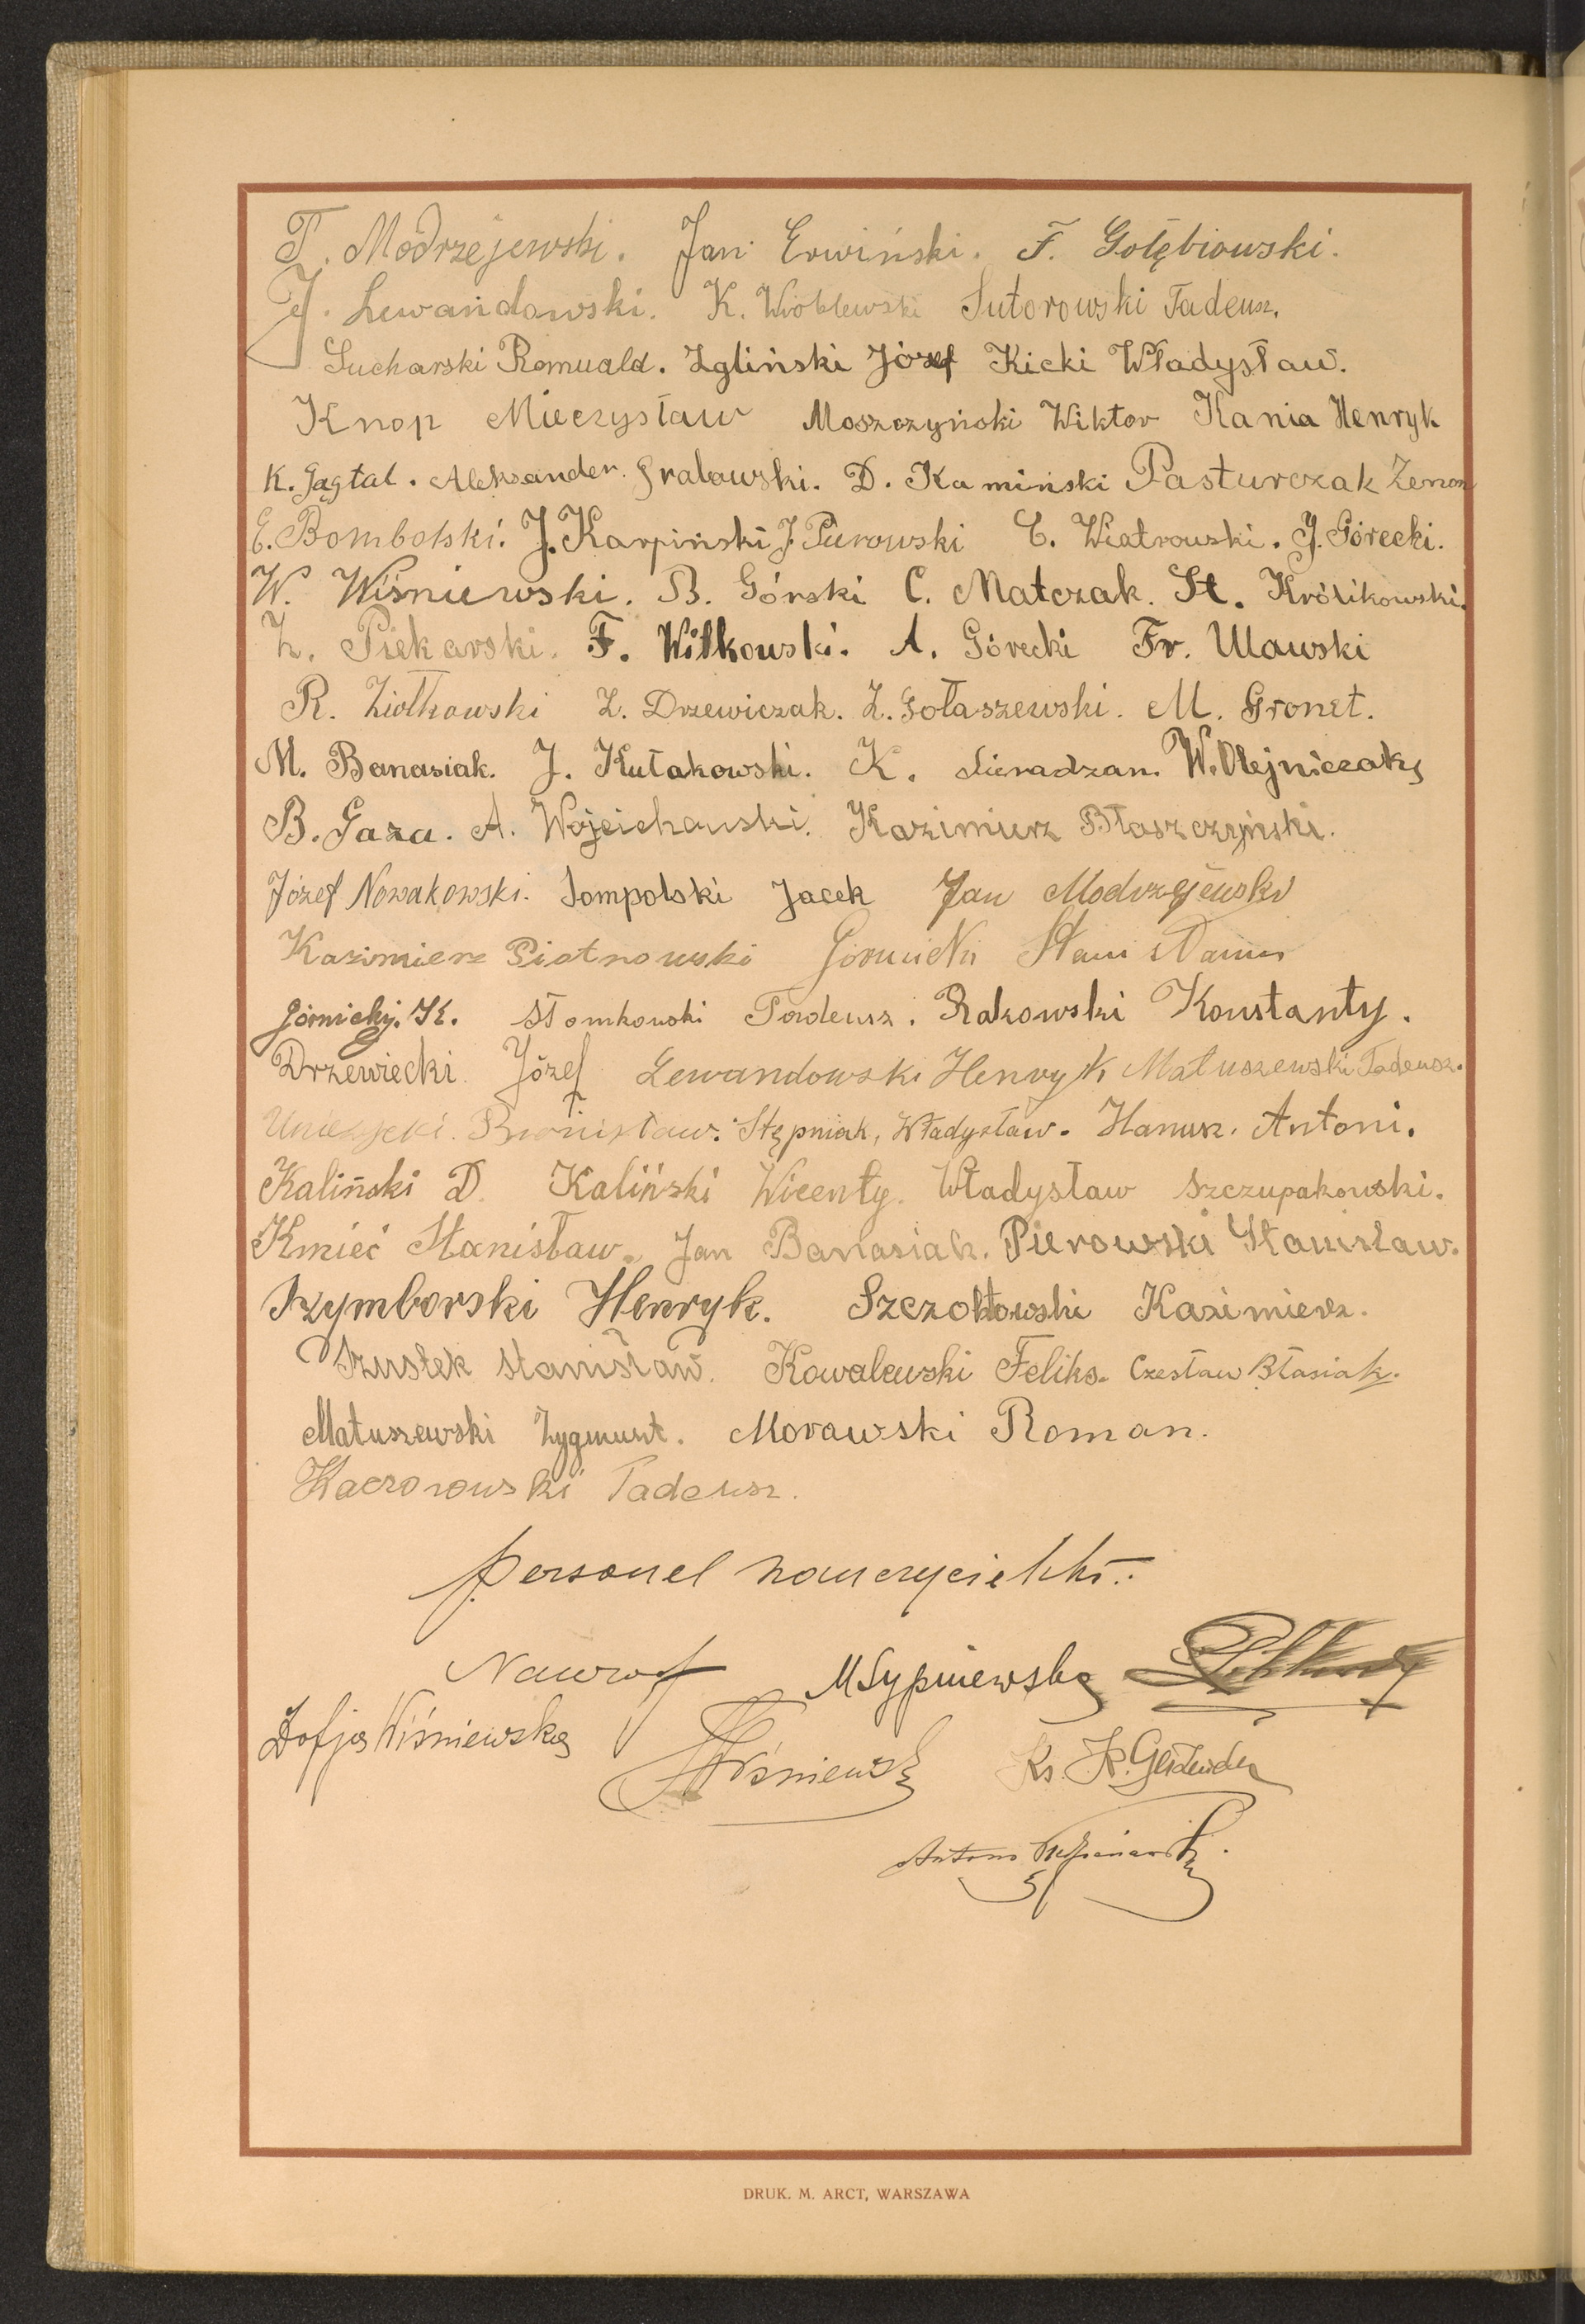 T. Modrzejewski. Jan Erwiński. F. Gołębiowski.
J. Lewandowski. K. Wróblewski Sutorowski Tadeusz.
Sucharski Romuald. Zgliński Józef Kicki Władysław.
Knop Mieczysław Moszczyński Wiktor Kania Henryk
K. Jagtal. Aleksander Grabowski. D. Kamiński Pasturczak Zenon
E. Bombolski. J. Karpiński J. Piurowski E. Wiatrowski. J. Górecki.
W. Wiśniewski. B. Górski C. Matczak. St. Królikowski.
Z. Piekarski. F. Wilkowski. A. Górecki Fr. Ulawski
R. Ziółkowski Z. Drzewiczak. Z. Gołaszewski. M. Gronet.
M. Banasiak. J. Kułakowski. K. Sieradzan. W. Olejniczak
B. Gaza. A. Wojciechowski. Kazimierz Błaszczyński.
Józef Nowakowski. Sompolski Jacek Jan Modrzejewski
Kazimierz Piotrowski Górnicki Stanisław
Górnicky. K. Słomkowski Tadeusz. Rakowski Konstanty.
Drzewiecki Józef Lewandowski Henryk Matuszewski Tadeusz.
Bronisław. Stępniak, Władysław. Hanusz. Antoni.
Kaliński D. Kaliński Wicenty. Władysław Szczupakowski.
Kmieć Stanisław. Jan Banasiak. Pierowski Stanisław.
Szymborski Henryk. Szczokowski Kazimierz.
Szustek Stanisław. Kowalewski Feliks. Czesław Błasiak.
Matuszewski Zygmunt. Morawski Roman.
Kaczorowski Tadeusz.
Personel nauczycielski:
Nawrot MSypniewska
Zofja Wiśniewska Wiśniewski Ks. K.
Antoni
DRUK. M. ARCT, WARSZAWA